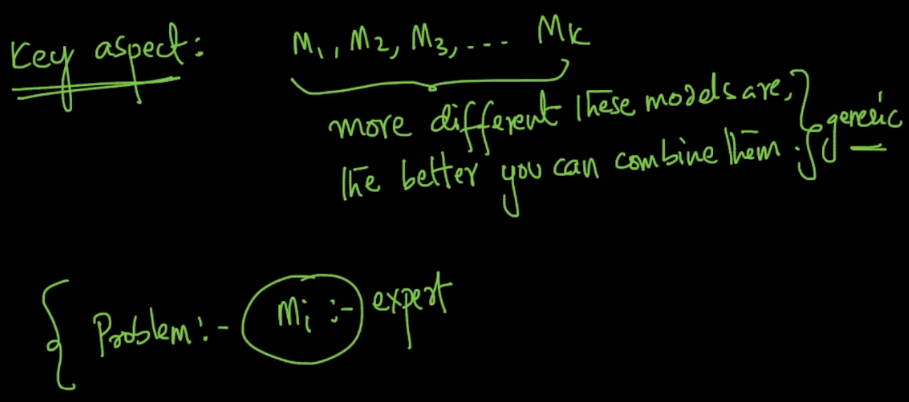 Key aspect: M1, M2, M3, ... Mk
more different these models are,
the better you can combine them. generic
Problem:- Mi :- expert